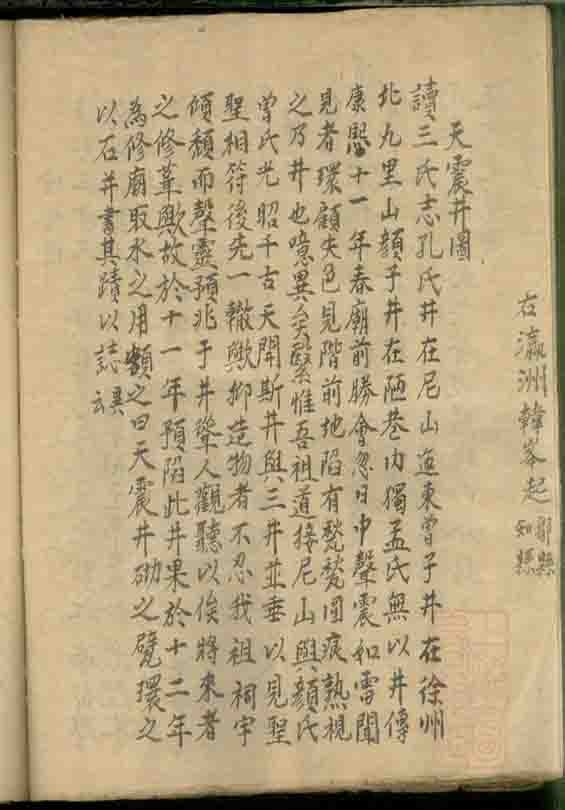 右瀛洲韓峯起鄒縣知縣
天震井圖
讀三氏志孔氏井在尼山迤東曾子井在徐州
北九里山顏子井在陋巷内獨孟氏無以井傳
康熙十一年春廟前勝會忽日中聲震如雷聞
見者環顧失色見階前地陷有甃甃圓痕熟視
之乃井也噫異矣繄惟吾祖道接尼山與顏氏
曾氏光昭千古天開斯井與三井並垂以見聖
聖相符後先一轍歟抑造物者不忍我祖祠宇
傾頹而聲靈預兆于井聳人觀聽以俟將來者
之修葺歟故於十一年預陷此井果於十二年
為修廟取水之用額之曰天震井砌之甓環之
以石并書其蹟以誌異云